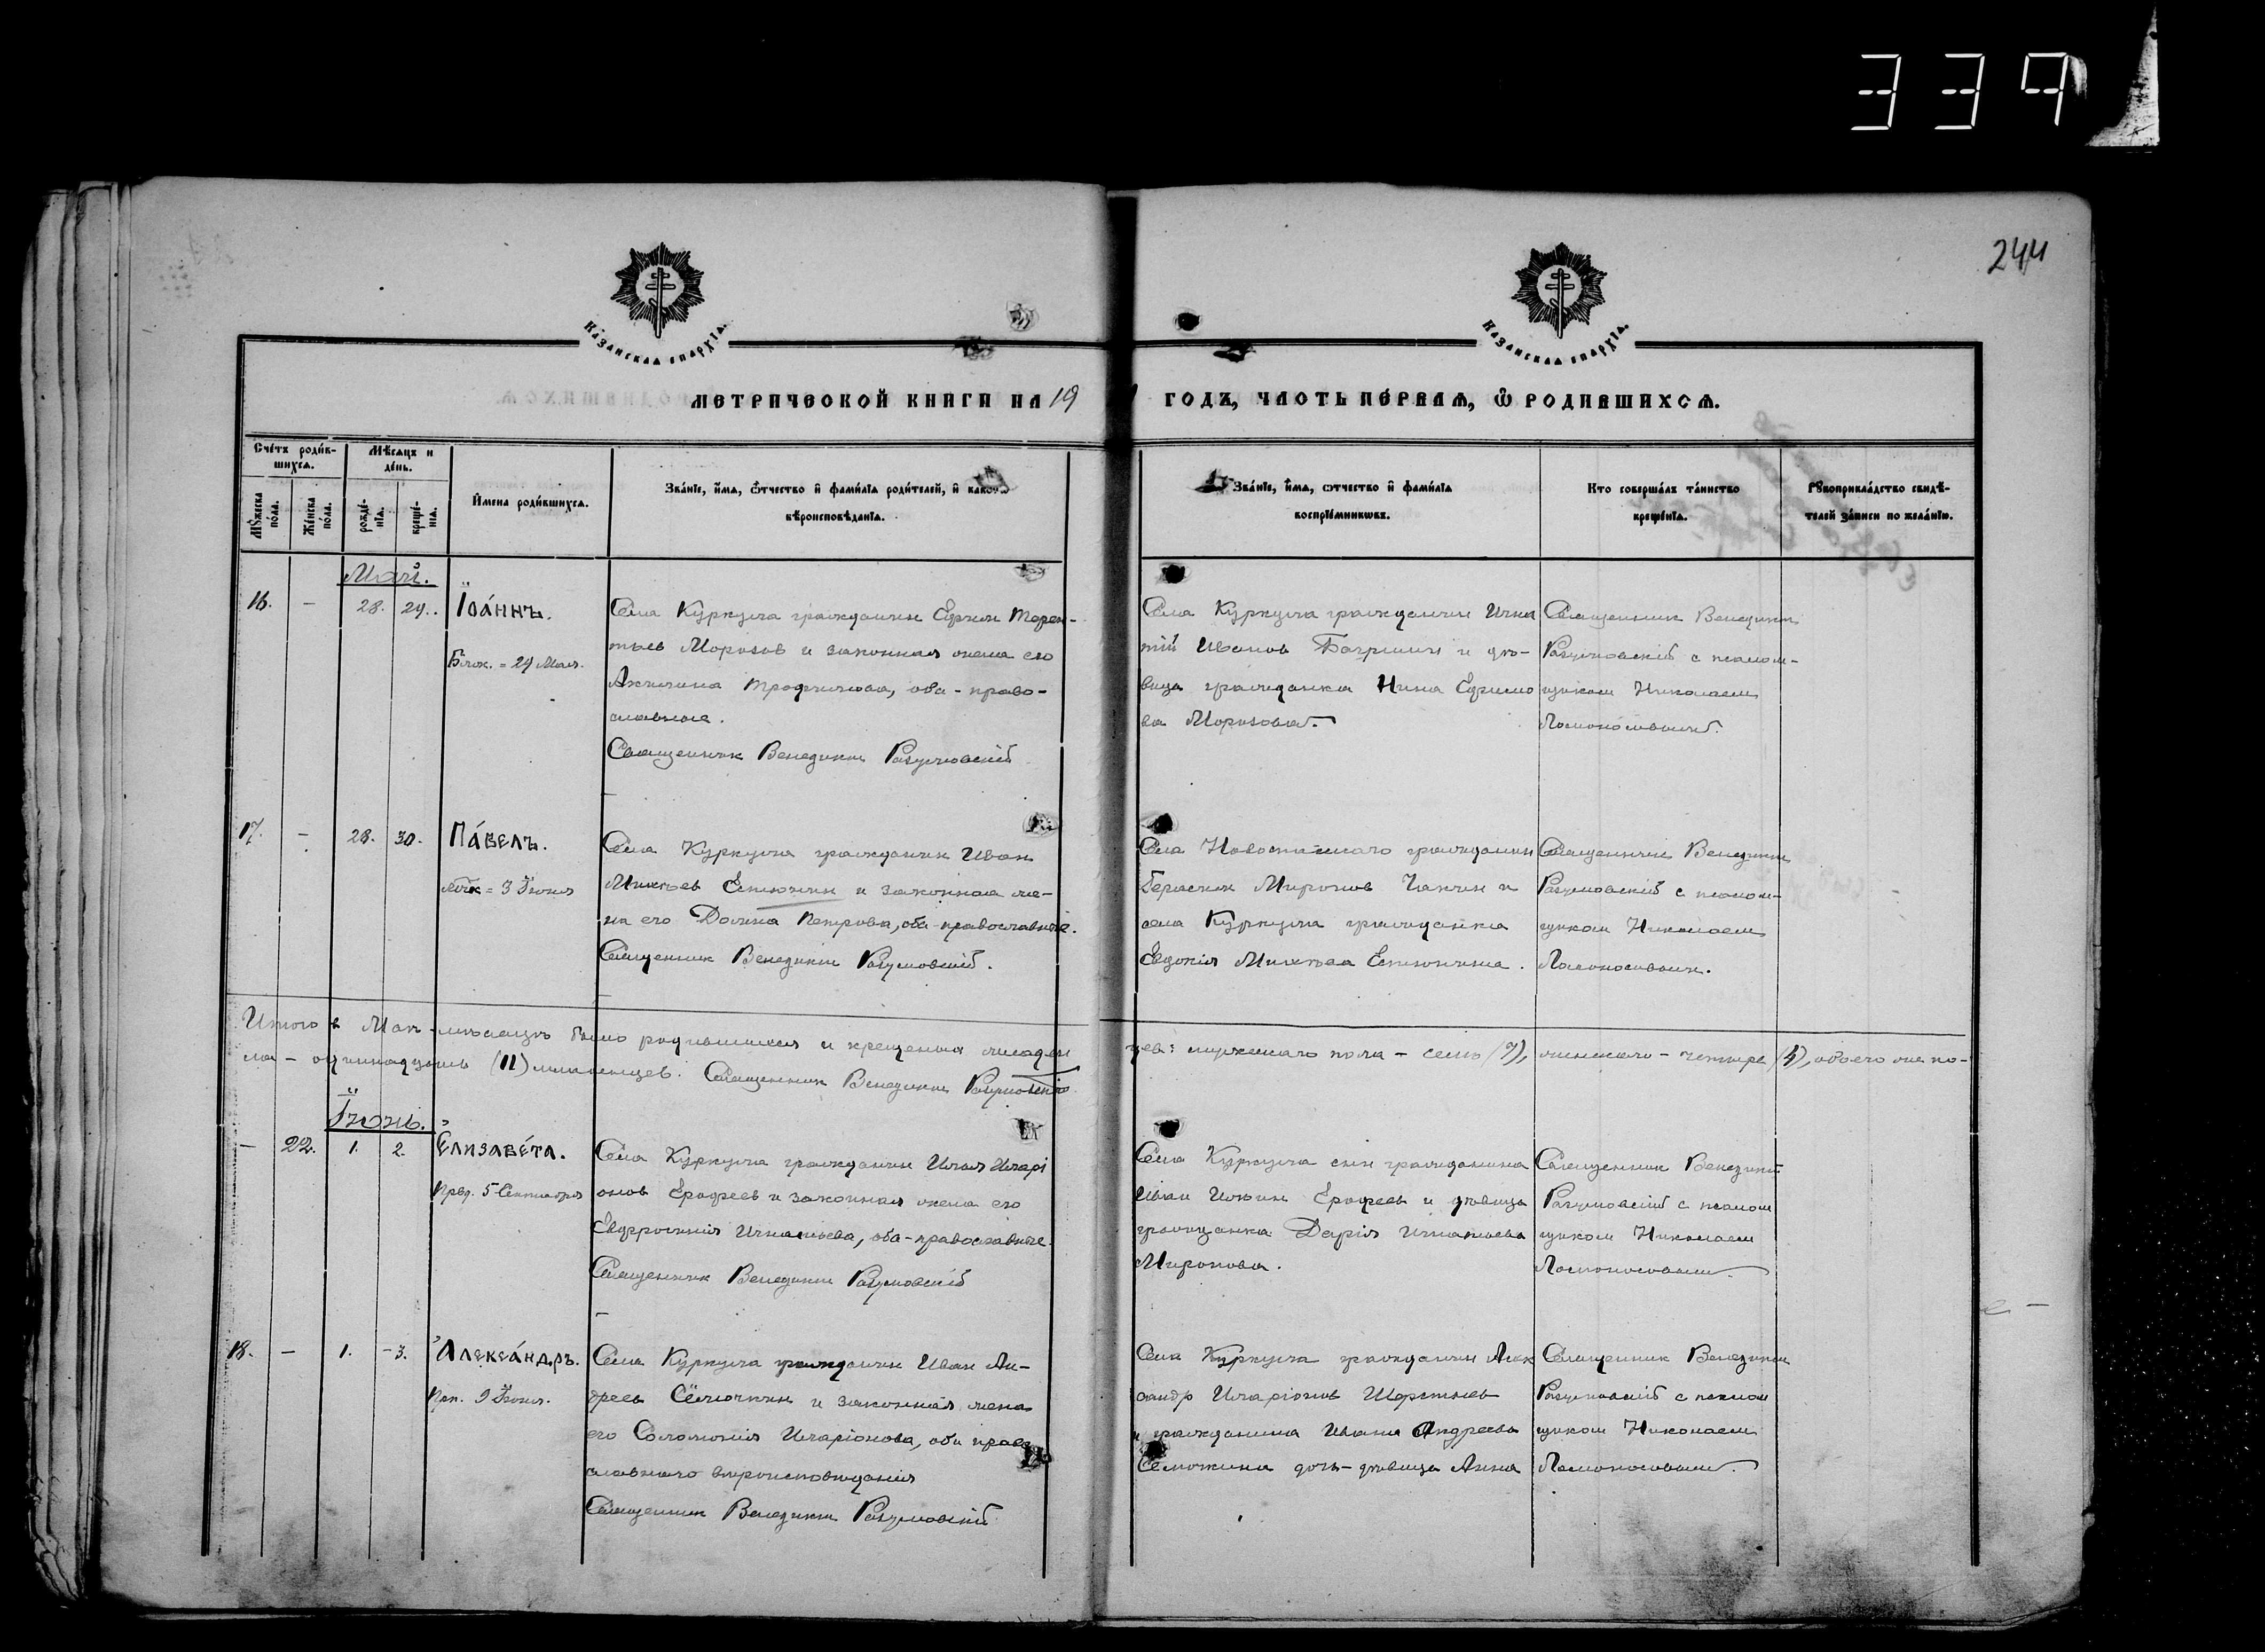 339
244
Казанская епархїа.
Казанская епархїа.
МЕТРИЧЕСКОЙ КНИГИ НА 19
ГОДЪ, ЧАСТЬ ПЕРВАѦ, Ѽ РОДИВШИХСѦ.
Счётъ роди́вшихся.
Мѣ́сяцъ и де́нь.
И҆мена роди́вшихся.
Зва́нїе, и҆мя, ѻ҆́тчество и҆ фами́лїа роди́телей, и҆ како́гѡ
вѣроисповѣ́данїа.
Зва́нїе, и҆мя, ѻ҆́тчество и҆ фами́лїа
воспрїе́мникѡвъ.
Кто соверша́лъ та́инство
креще́нїа.
Рꙋкоприкла́дство свидѣ́-
телей за́писи по жела́нїю.
Мꙋ́жеска по́ла.
Же́нска по́ла.
рожде́-нїа.
креще́-нїа.
Май.
16. – 28. 29. Іоа́ннъ.
Блж. = 29 Мая.
Села Куркуля гражданин Ефим Терен-
тьев Морозов и законная жена его
Акилина Трофимова, оба - право-
славные.
Священник Венедикт Разумовскій
Села Куркуля гражданин Игна
тій Иванов Багришин и дѣ-
вица гражданка Нина Ефимо
ва Морозова.
Священник Венедикт
Разумовскій с псалом-
щиком Николаем
Ломоносовым.
17. – 28. 30. Па́велъ.
= 3 Іюня
Села Куркуля гражданин Иван
Михѣев Естюнин и законная же-
на его Домна Петрова, оба - православные.
Священник Венедикт Разумовскій.
Села гражданин
Герасим Миронов Чакин и
села Куркуля гражданка
Евдокія Михѣева Естюнина.
Священник Венедикт
Разумовскій с псалом-
щиком Николаем
Ломоносовым.
Итого в Маѣ мѣсяцѣ было родившихся и крещеных младен
цев: мужескаго пола – семь (7), женскаго – четыре (4), обоего же по-
ла – одиннадцать (11) младенцев. Священник Венедикт Разумовскій
Іюнь.
– 22. 1. 2. Елизаве́та.
Прав. 5 Сентября
Села Куркуля гражданин Илья Иларі
онов Ерофеев и законная жена его
Евфросинія Игнатьева, оба - православные.
Священник Венедикт Разумовскій
Села Куркуля сын гражданина
Иван Ильин Ерофеев и дѣвица
гражданка Дарія Игнатьева
Миронова.
Священник Венедикт
Разумовскій с псалом
щиком Николаем
Ломоносовым.
18. – 1. – 3. Алекса́ндръ.
Прп. 9 Іюня.
Села Куркуля гражданин Иван Ан-
дреев Сёмочкин и законная жена
его Соломонія Иларіонова, оба право
славнаго вѣроисповѣданія
Священник Венедикт Разумовскій
Села Куркуля гражданин Алек
сандр Иларіонов Шерстнев
и гражданина Ивана Андреева
дочь - дѣвица Анна
Священник Венедикт
Разумовскій с псалом
щиком Николаем
Ломоносовым.